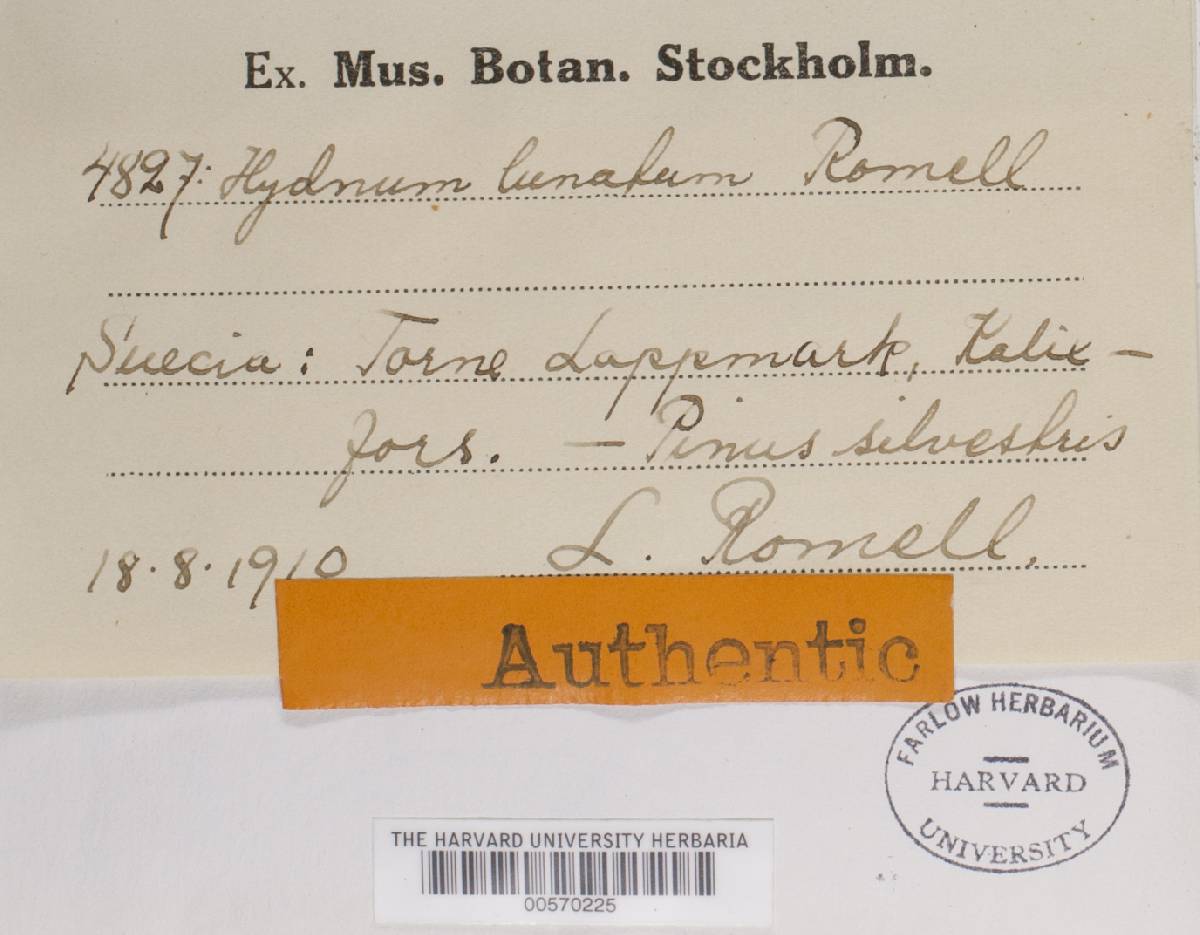 Ex. Mus. Botan. Stockholm.
4827: Hydnum lunatum Romell
Suecia: Torne Lappmark, Kalix-
fors. — Pinus silvestris
L. Romell.
18.8.1910
Authentic
FARLOW HERBARIUM
HARVARD
UNIVERSITY
THE HARVARD UNIVERSITY HERBARIA
00570225